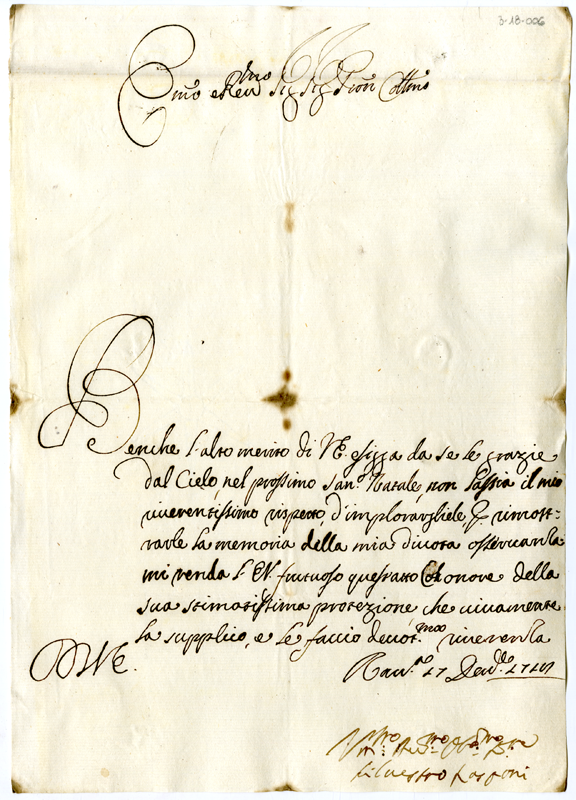 3-18-006
Emo e Rev.mo Sig Sig Pron Coltmo
Benche l'alto merito di VE esigga da se le grazie
dal Cielo, nel prossimo San.o Natale, non lassia il mio
riverentissimo rispetto, d'implorargliele, & rimost-
rarle la memoria della mia divota osservanza
mi renda l'EV. fruttuoso quest'atto Col onore della
sua stimatissima protezione, che vivamente
la supplico, e le faccio devot.mo riverenza
DVE.
Rav.a 17 Dec.
Silvestro Rasponi